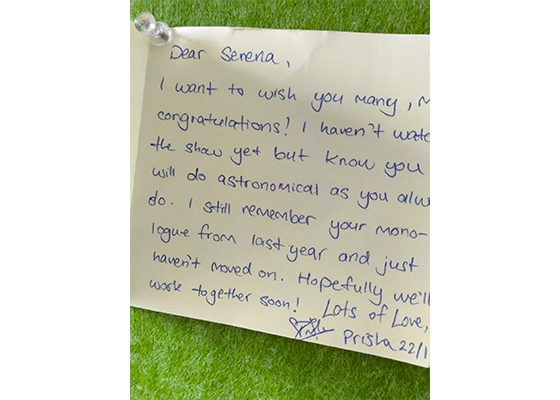 Dear Serena,
I want to wish you many, M
congratulations! I haven't watc
the show yet but know you
will do astronomical as you alw
do. I still remember your mono-
logue from last year and just
haven't moved on. Hopefully we'll
work together soon! Lots of Love,
Prisha 22/1